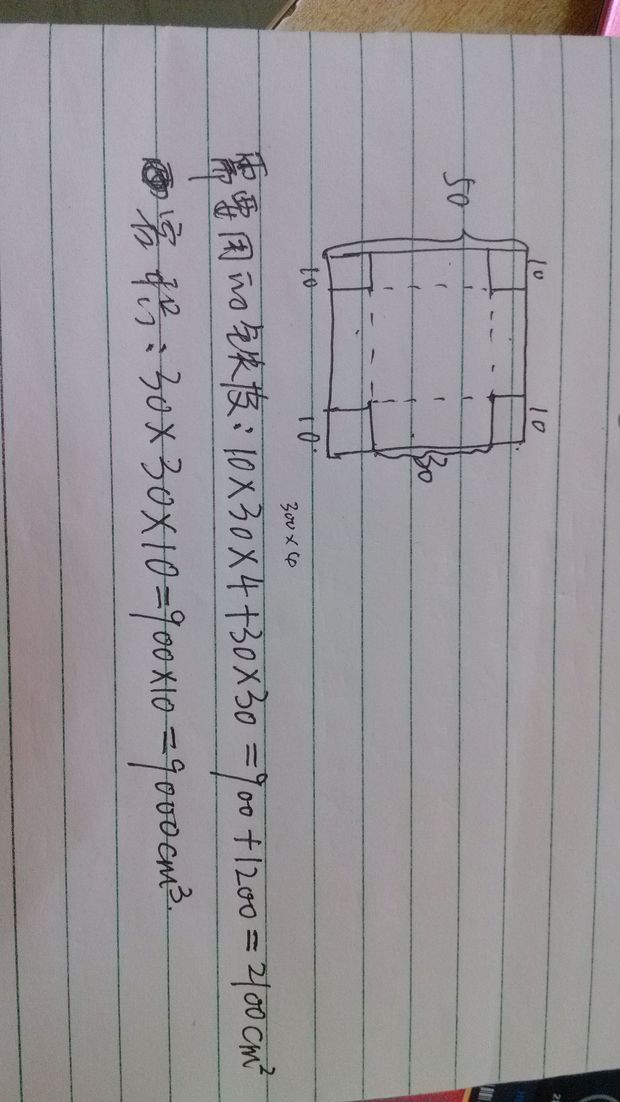 50
10
10
10
10
30
300×4
需要用的铁皮：10×30×4+30×30=900+1200=2100cm²
容积：30×30×10=900×10=9000cm³.